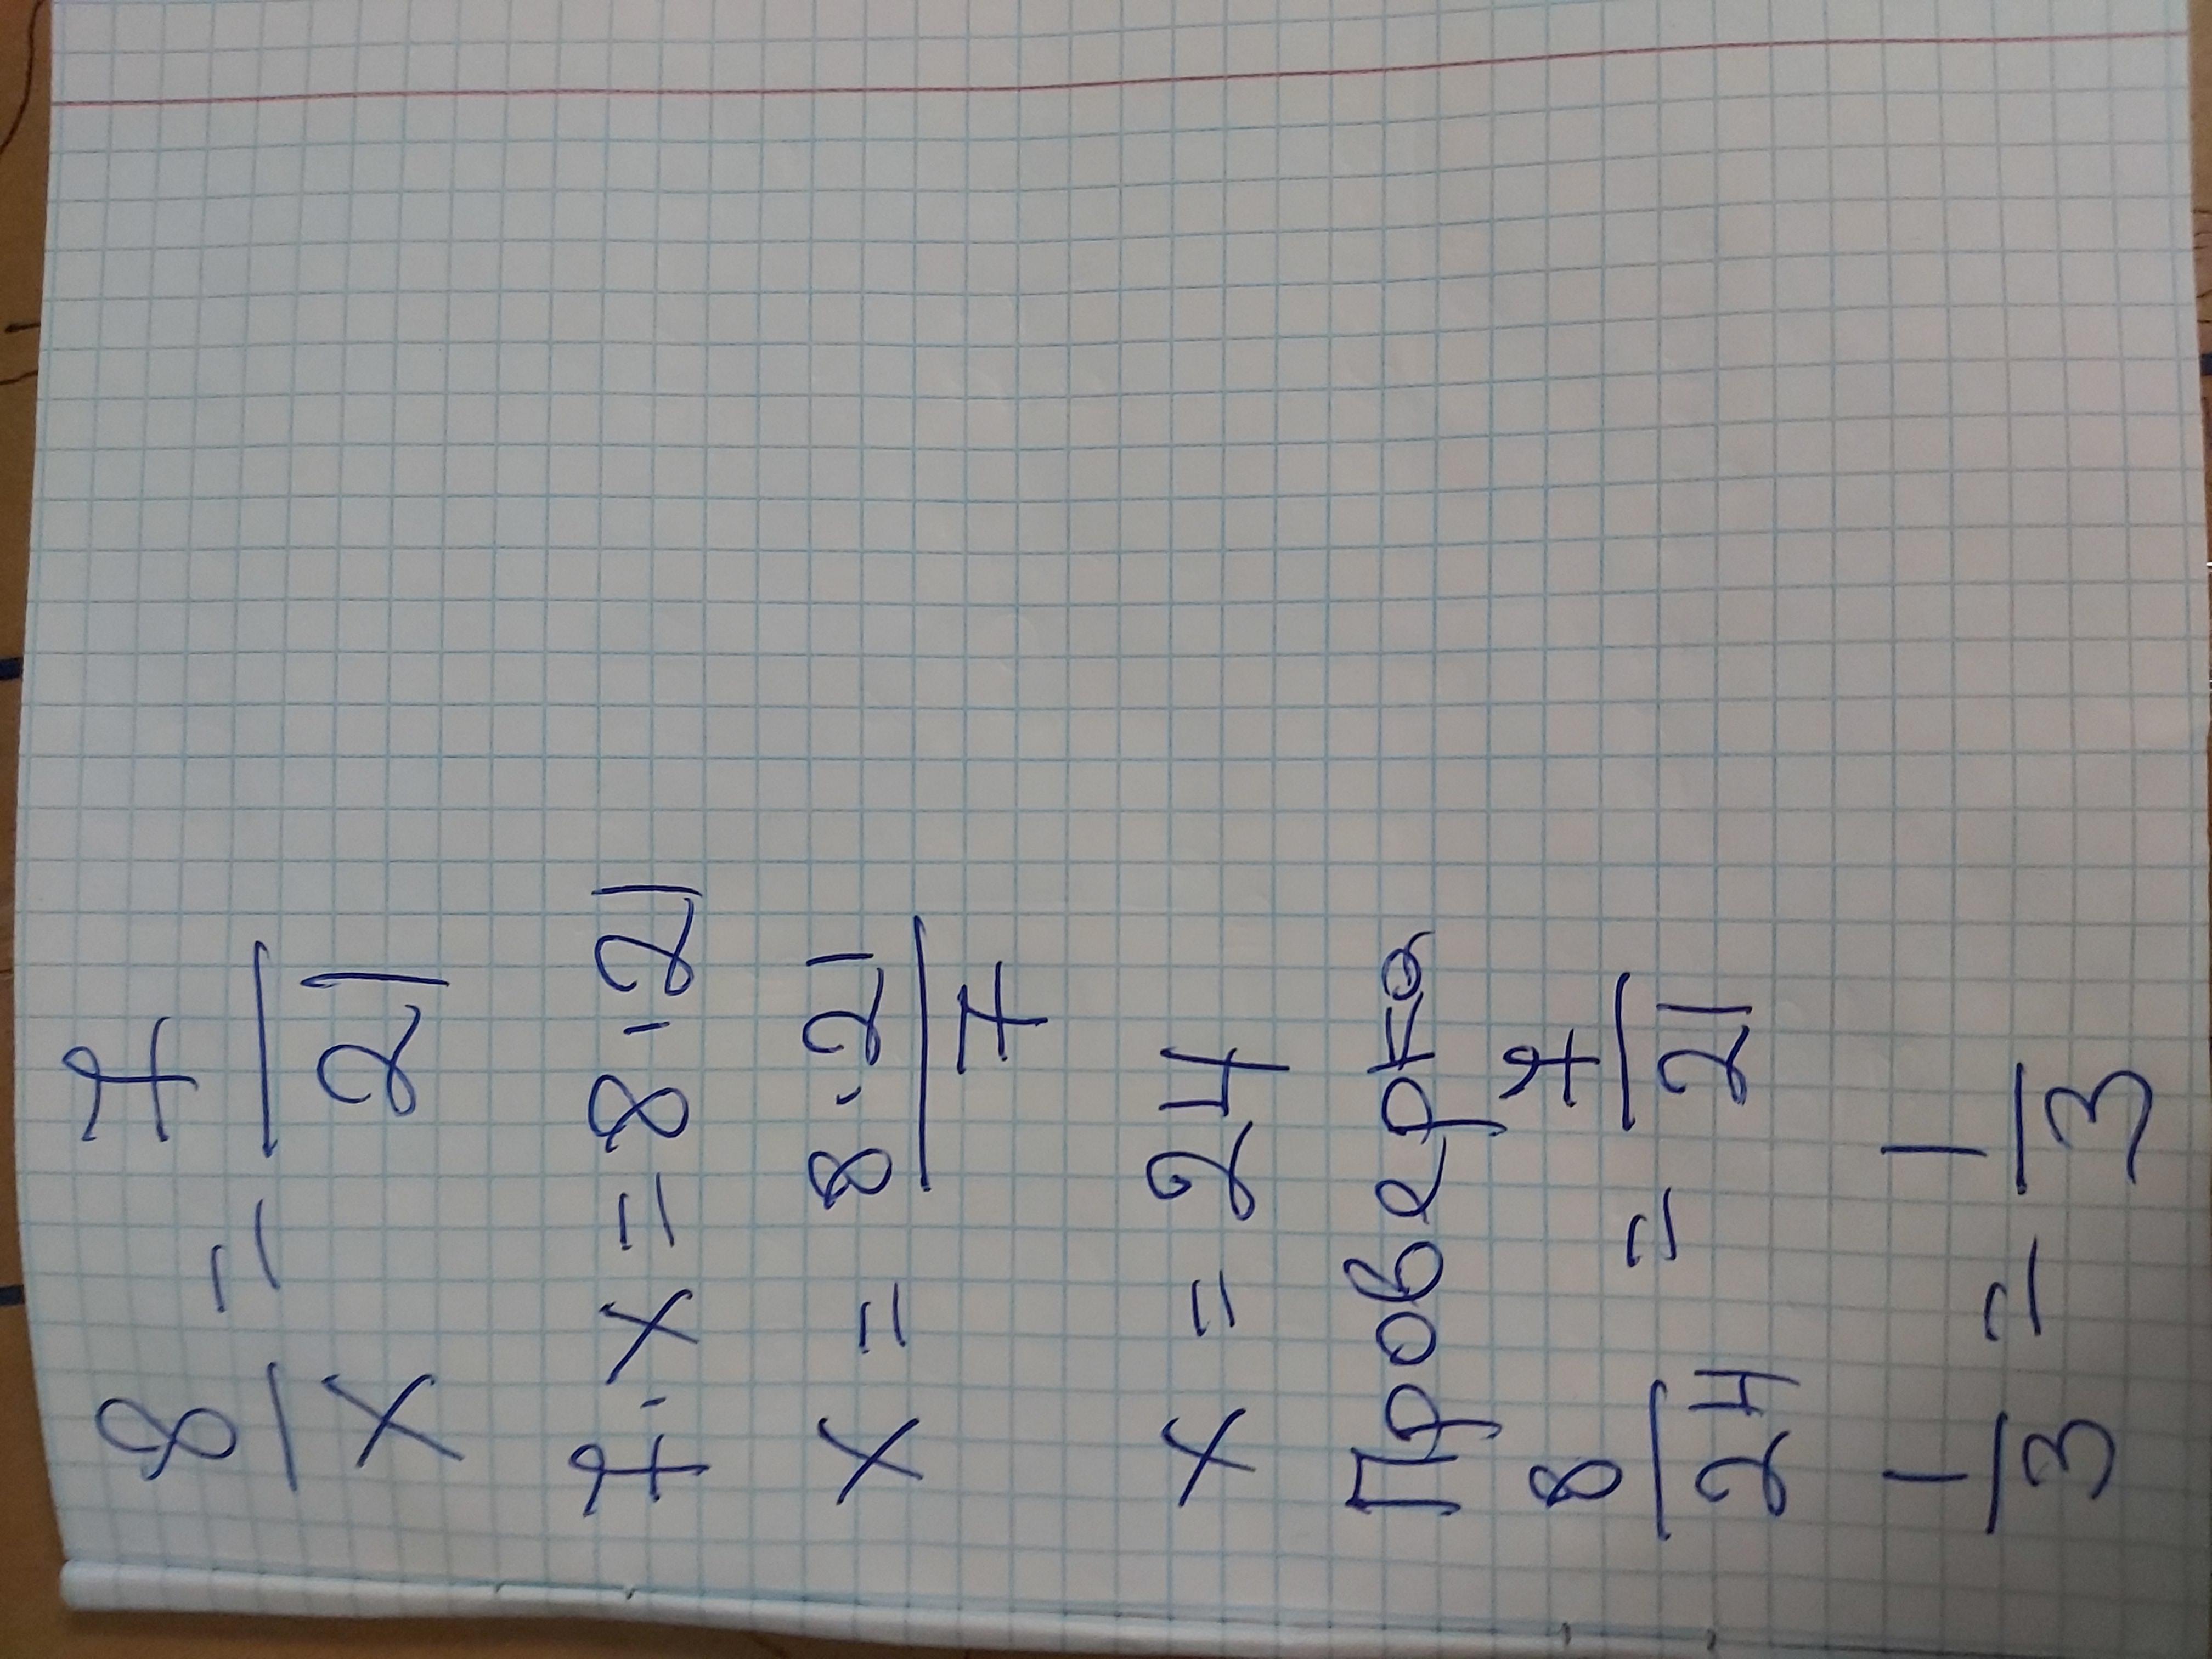 8/x = 7/21
7·x=8·21
x = 8·21/7
x = 24
Проверка
8/24 = 7/21
1/3 = 1/3